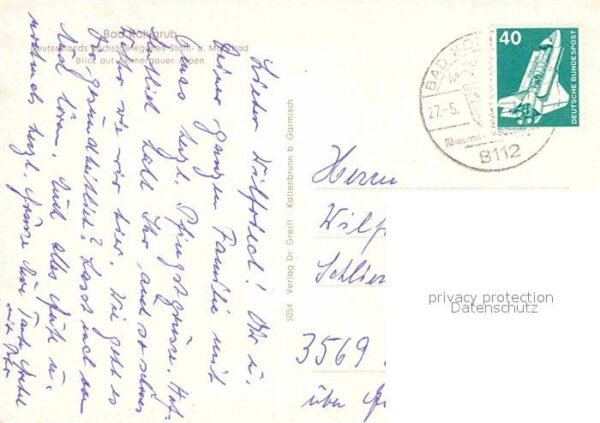 Bad Kohlgrub
Deutschlands höchstgelegenes Stahl- u. Moorbad
Blick auf Ammergauer Alpen
Lieber Wilfried! Dir u.
Deiner ganzen Familie
herzl. Pfingstgrüsse. Hof-
fentlich habt Ihr auch so schönes
wie wir hier. Wie geht es
Dir gesundheitlich? Lasst mal von
Euch hören. Euch alles Gute u.
nochmals herzl. Grüsse Eure Tante
5054 Verlag Dr. Greiff · Kaltenbrunn b Garmisch
40
DEUTSCHE BUNDESPOST
BAD KO
27.-5.
8112
Herrn
Wilf
Schlie
3569
über
privacy protection
Datenschutz